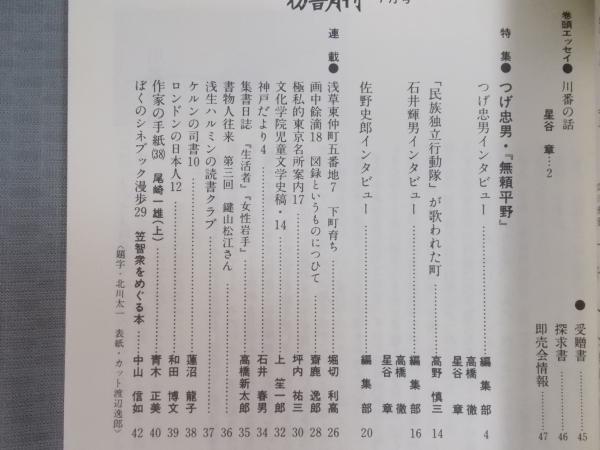 彷書月刊 7月号
巻頭エッセイ● 川番の話 星谷 章…2
特集● つげ忠男・『無頼平野』
つげ忠男インタビュー 編集部 4
高橋 徹
星谷 章
「民族独立行動隊」が歌われた町 高野 慎三 14
石井輝男インタビュー 編集部 16
高橋 徹
星谷 章
佐野史郎インタビュー 編集部 20
連載● 浅草東仲町五番地7 下町育ち 堀切 利高 26
画中餘滴18 図録というものについて 齋鹿 逸郎 28
極私的東京名所案内17 坪内 祐三 30
文化学院児童文学史稿・14 上 笙一郎 32
神戸だより4 石井 春男 34
集書日誌 『生活者』『女性岩手』 高橋新太郎 35
書物人往来 第三回 鍵山松江さん 36
浅生ハルミンの読書クラブ 37
ケルンの司書10 蓮沼 龍子 38
ロンドンの日本人12 和田 博文 39
作家の手紙(38) 尾崎一雄(上) 青木 正美 40
ぼくのシネブック漫歩29 笠智衆をめぐる本 中山 信如 42
●受贈書 45
探求書 46
即売会情報 47
〈題字・北川太一 表紙・カット渡辺逸郎〉